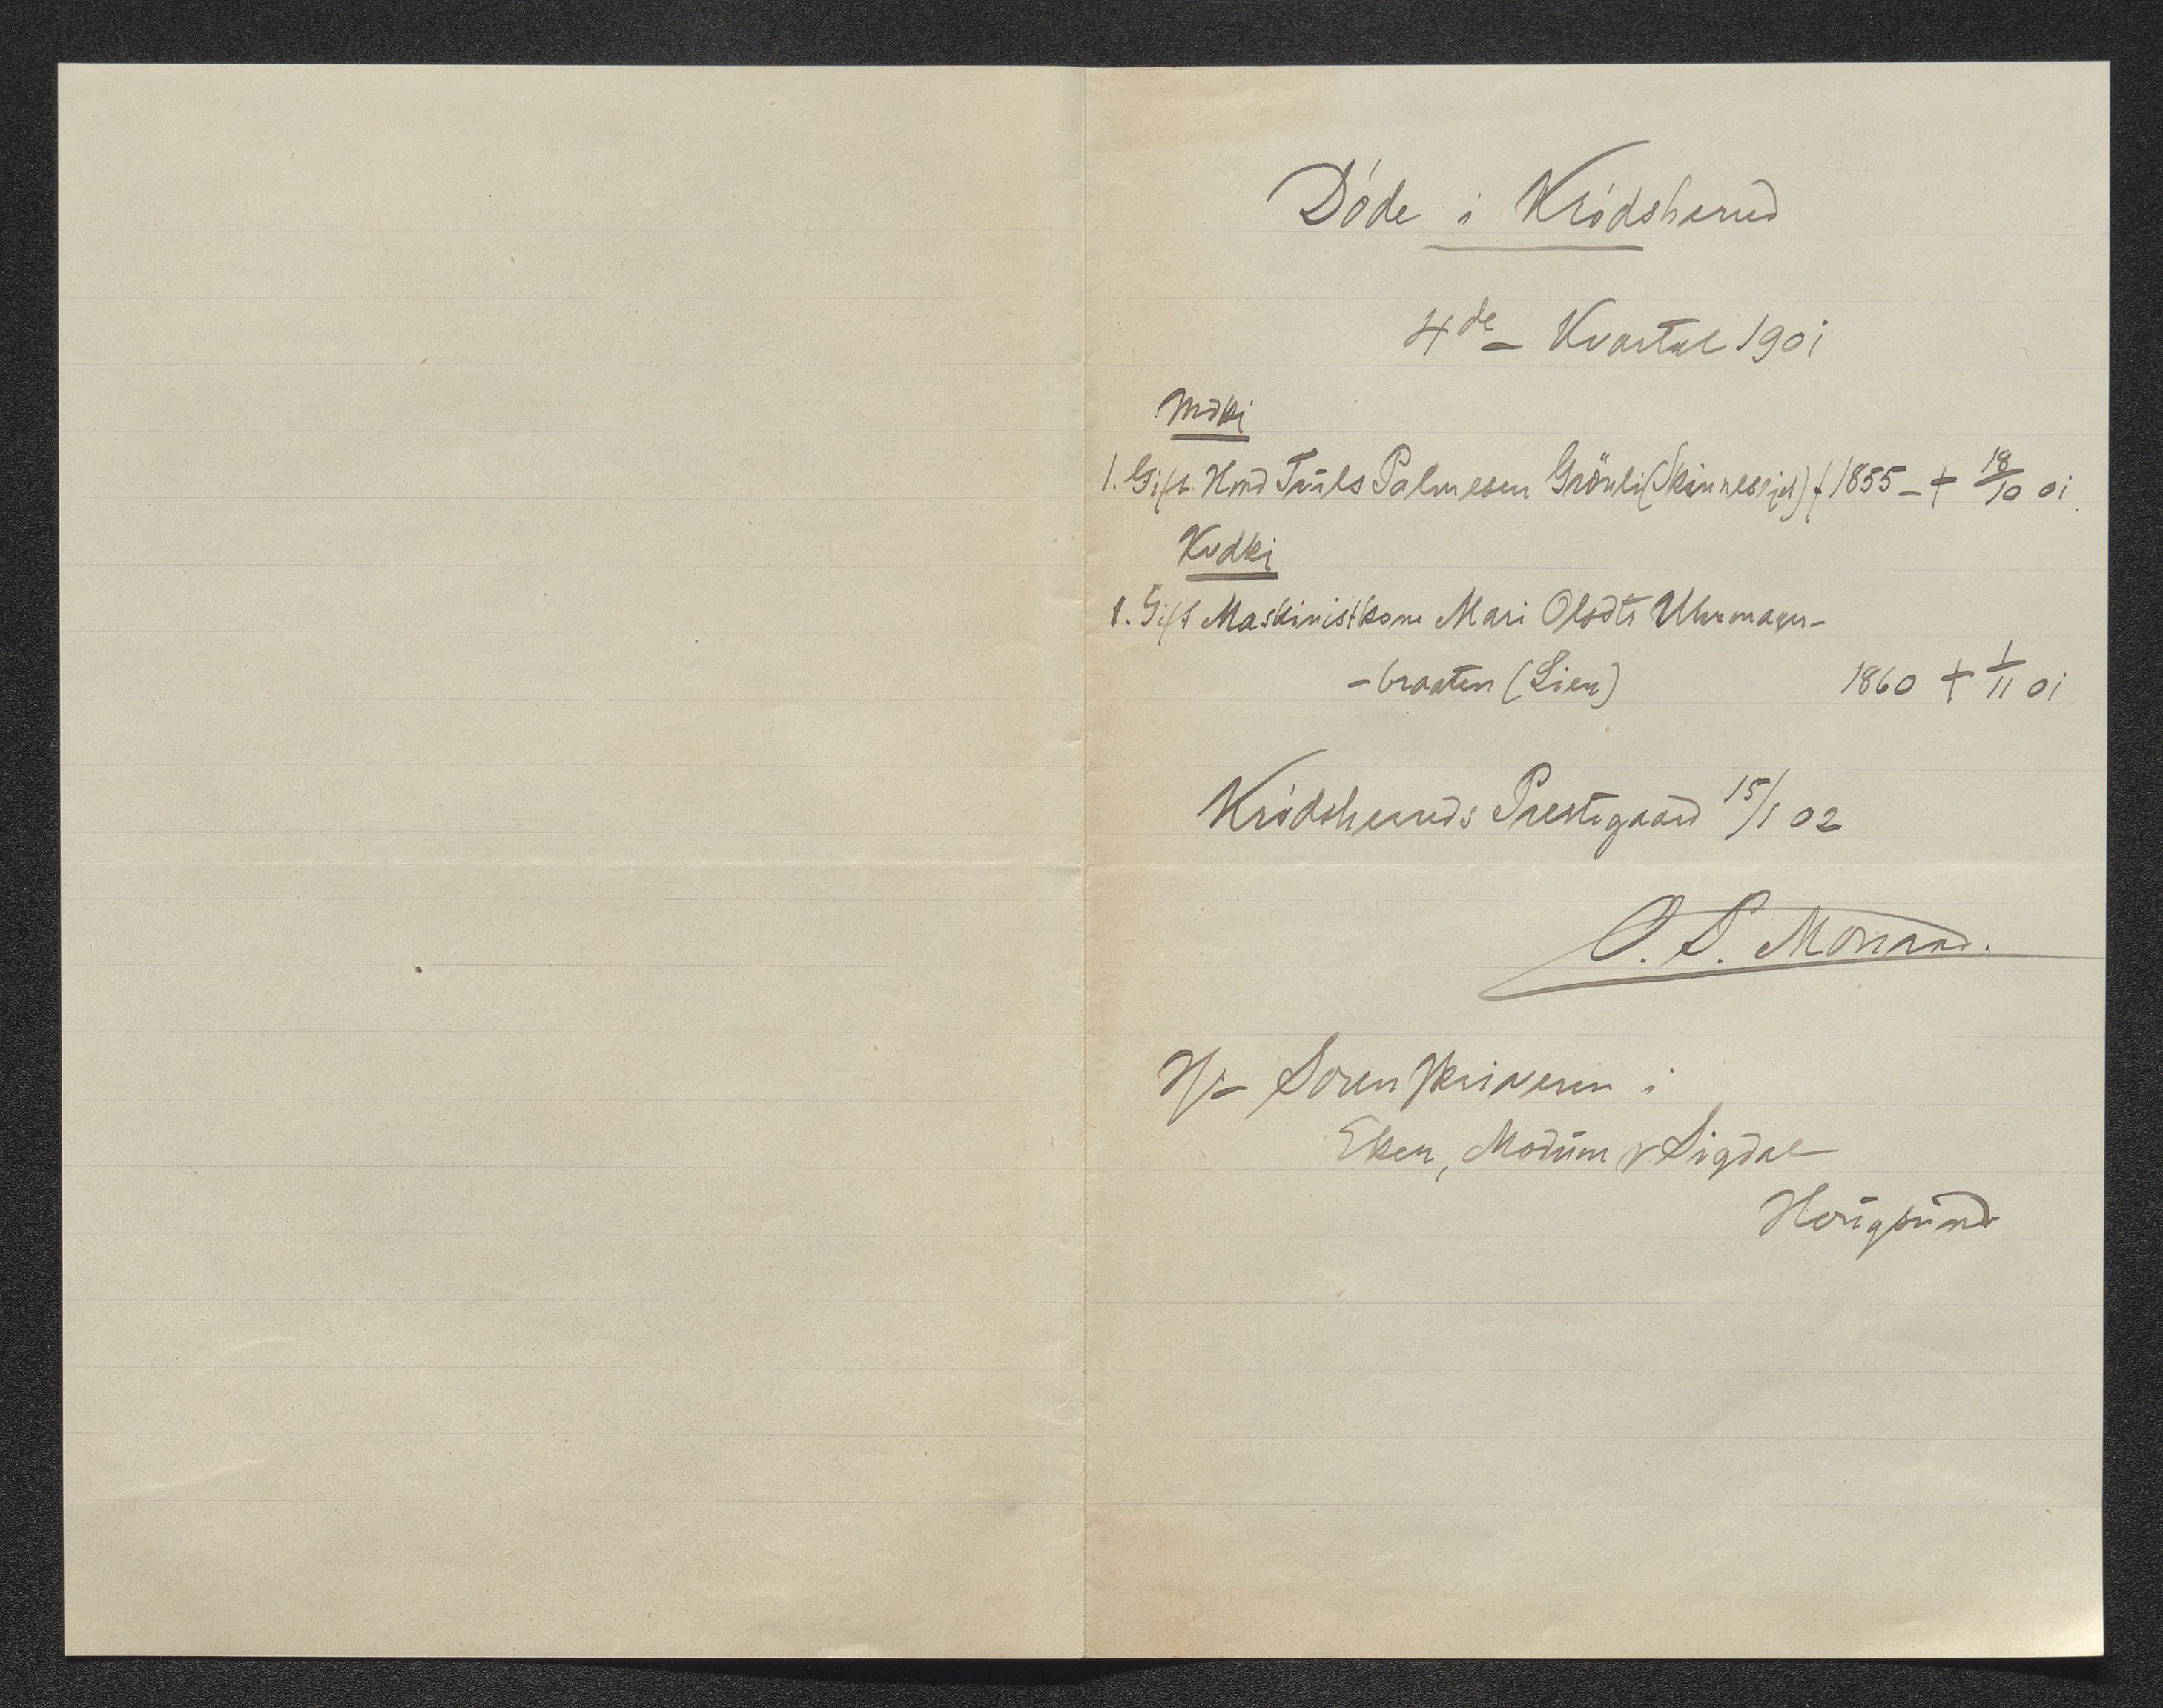 Døde i Krødsherred
4de Kvartal 1901
Mdkj
1. Gift Hmd Truls Palmesen Grönli (Skinnesejet) f 1855 - + 18/10 01.
Kvdkj
1. Gift Maskinistkone Mari Olsdtr Uhrmager-
- braaten (Lien) 1860 + 1/11 01
Krødsherreds Prestegaard 15/1 02
O. P. Monrad.
Hr Sorenskriveren i
Eker, Modum & Sigdal
Hougsund